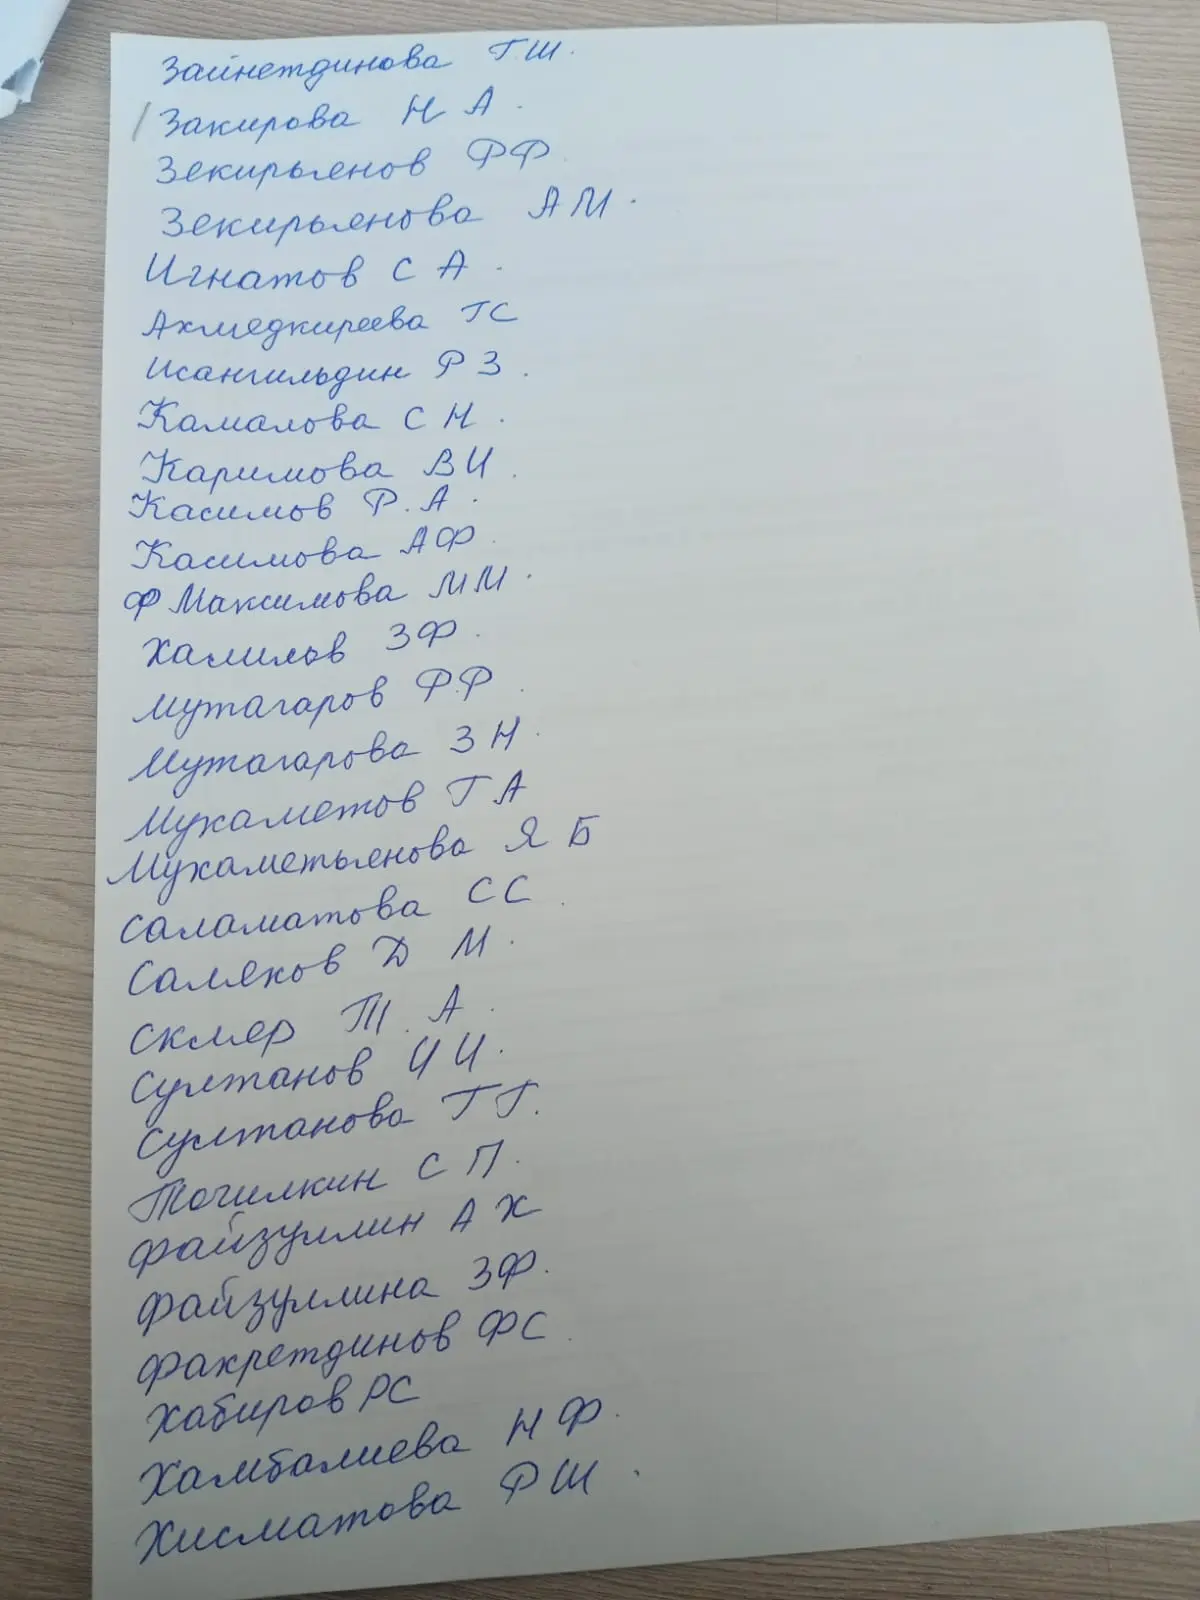 Зайнетдинова ГШ.
Закирова Н А.
Зекирьянов РФ
Зекирьянова АМ.
Игнатов С А.
Ахмедкиреева ГС
Исангильдин РЗ.
Камалова С Н.
Каримова ВИ.
Касимов Р.А.
Касимова АФ.
Ф Максимова ММ.
Халилов ЗФ.
Мутагаров Р.Р.
Мутагарова ЗН.
Мухаметов Г А
Мухаметьянова Я Б
Саламатова СС.
Саляхов Д М.
Скляр Т. А.
Султанов И И.
Султанова ГГ.
Точилкин С П.
Файзуллин А Х
Файзуллина ЗФ.
Фахретдинов ФС.
Хабиров РС
Хамбалиева НФ.
Хисматова РШ.